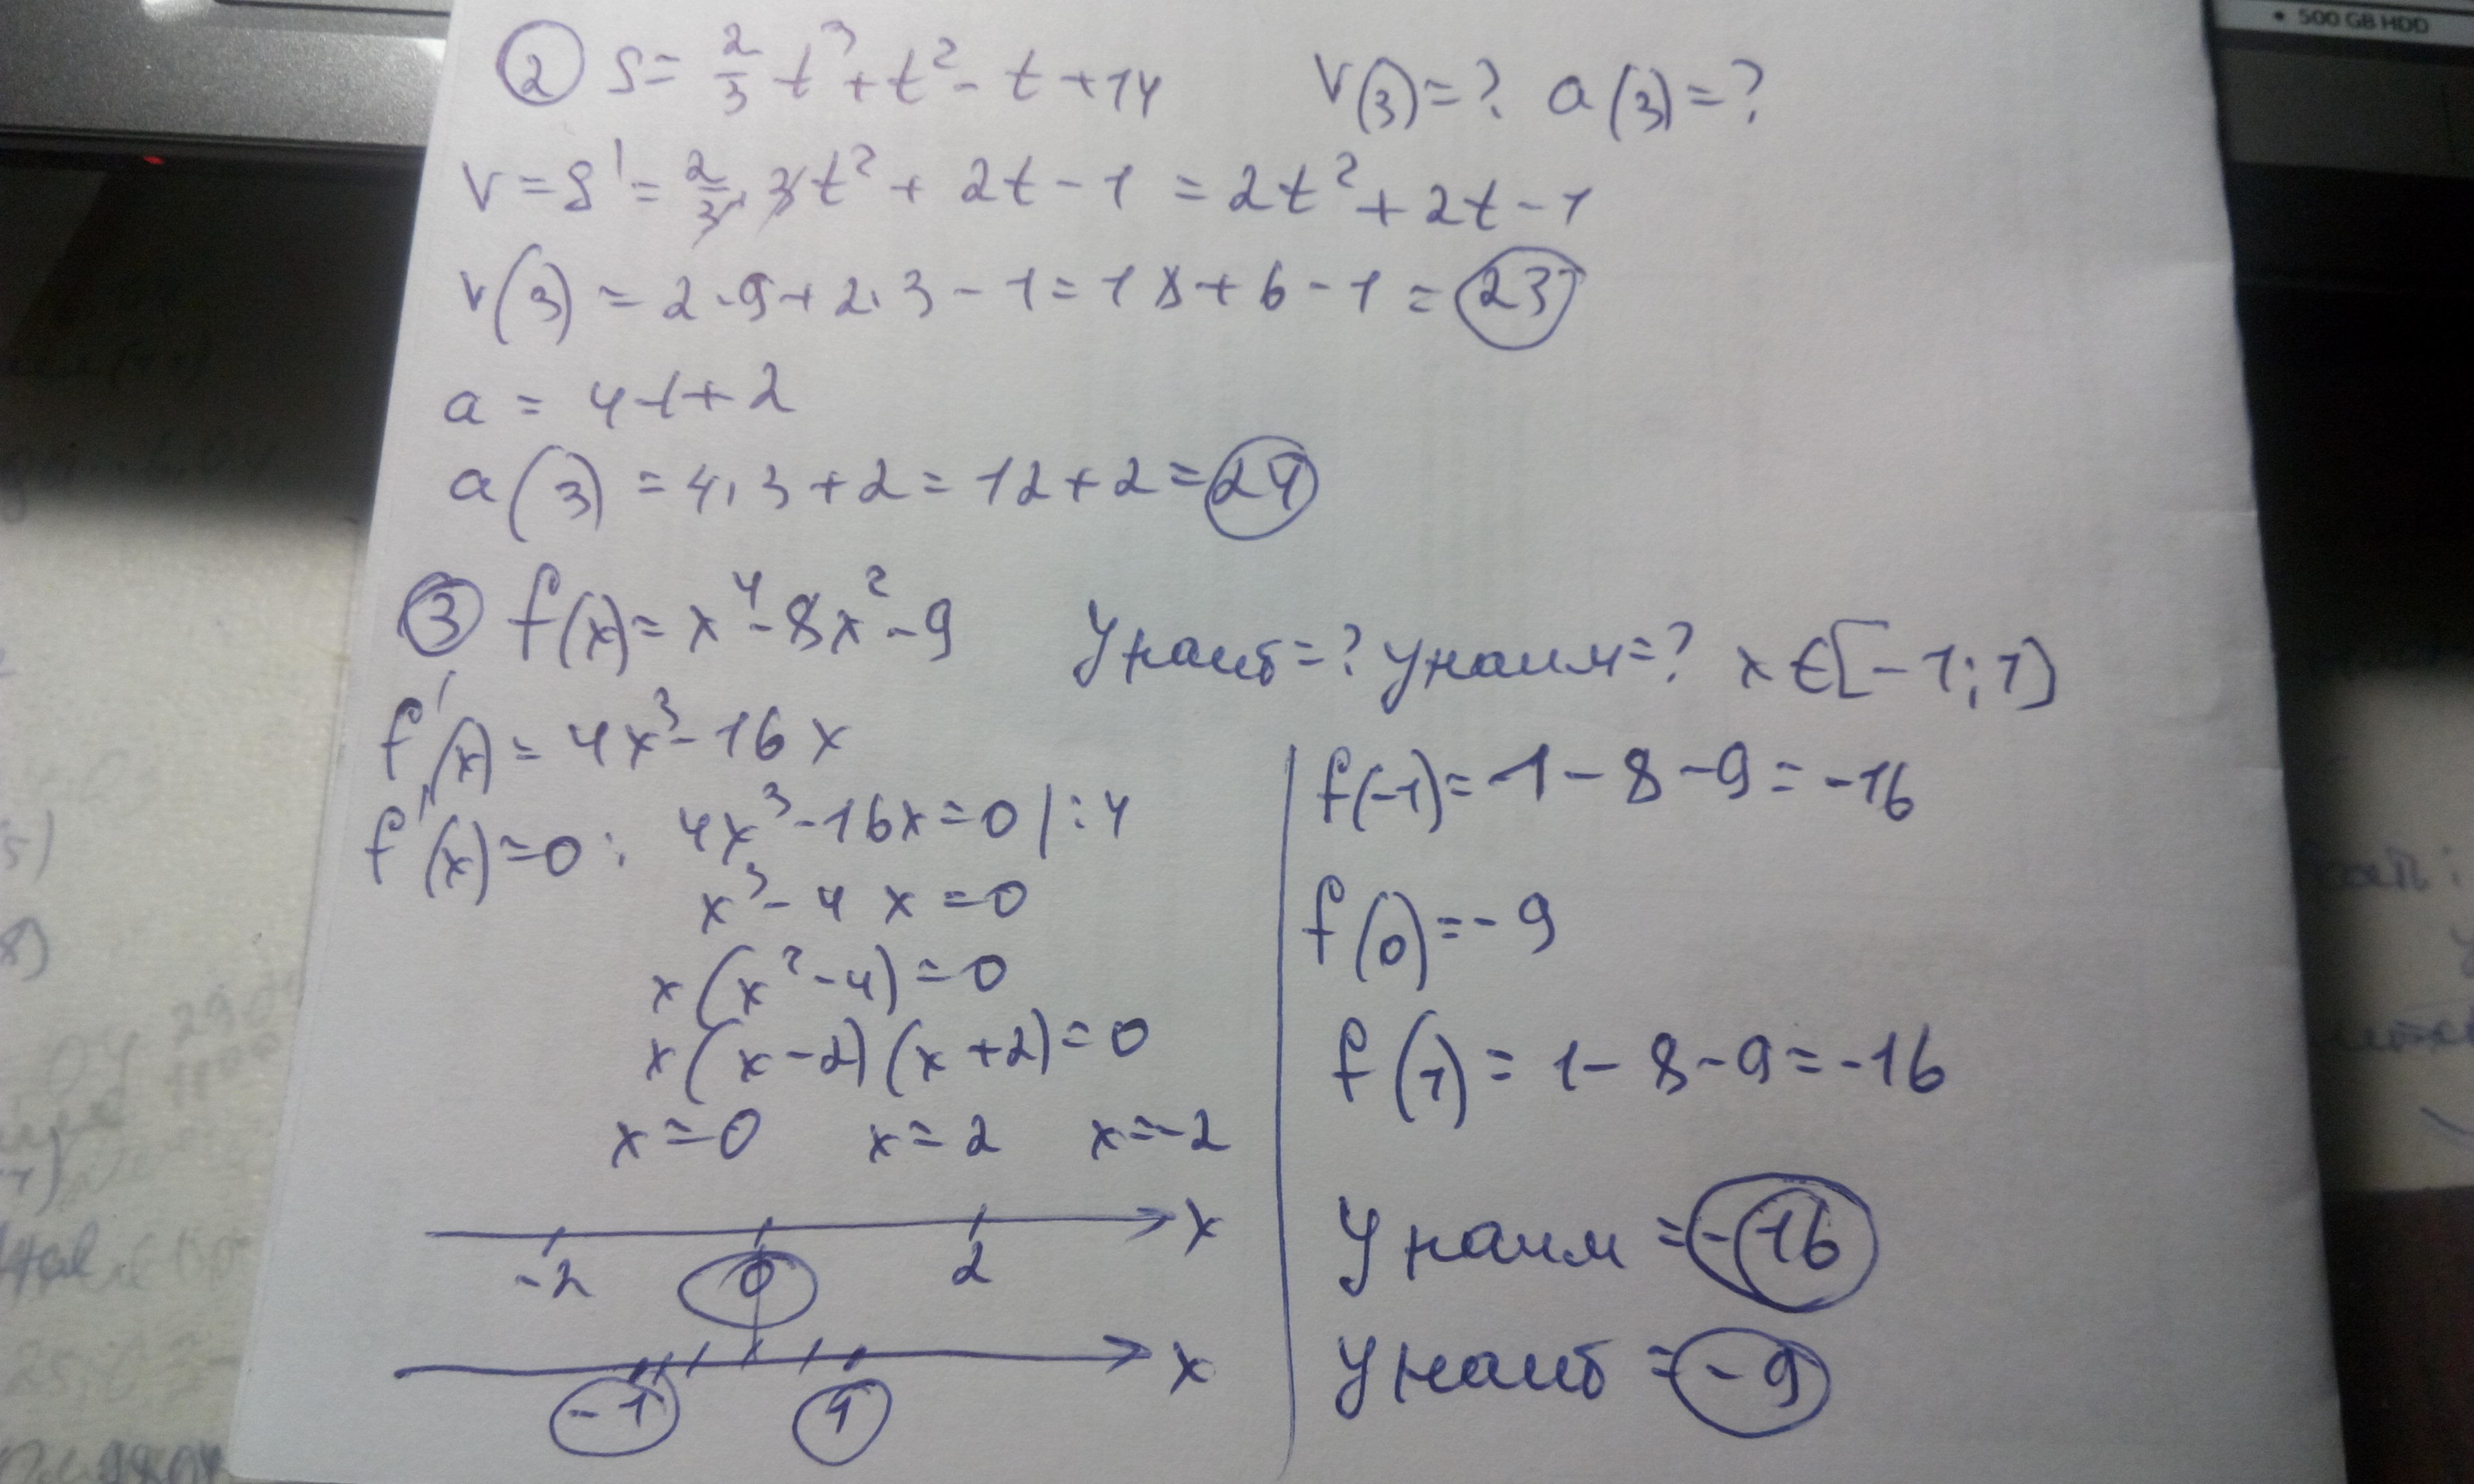 • 500 GB HDD
② S = 2/3 t³ + t² - t + 14 V(3) = ? a(3) = ?
V = S' = 2/3 · 3t² + 2t - 1 = 2t² + 2t - 1
V(3) = 2·9 + 2·3 - 1 = 18 + 6 - 1 = 23
a = 4t + 2
a(3) = 4·3 + 2 = 12 + 2 = 24
③ f(x) = x⁴ - 8x² - 9 Унаиб = ? Унаим = ? x ∈ [-1; 1]
f'(x) = 4x³ - 16x
f'(x) = 0 : 4x³ - 16x = 0 | : 4
x³ - 4x = 0
x(x² - 4) = 0
x(x - 2)(x + 2) = 0
x = 0 x = 2 x = -2
-2 0 2 x
-1 1 x
f(-1) = 1 - 8 - 9 = -16
f(0) = -9
f(1) = 1 - 8 - 9 = -16
Унаим = -16
Унаиб = -9